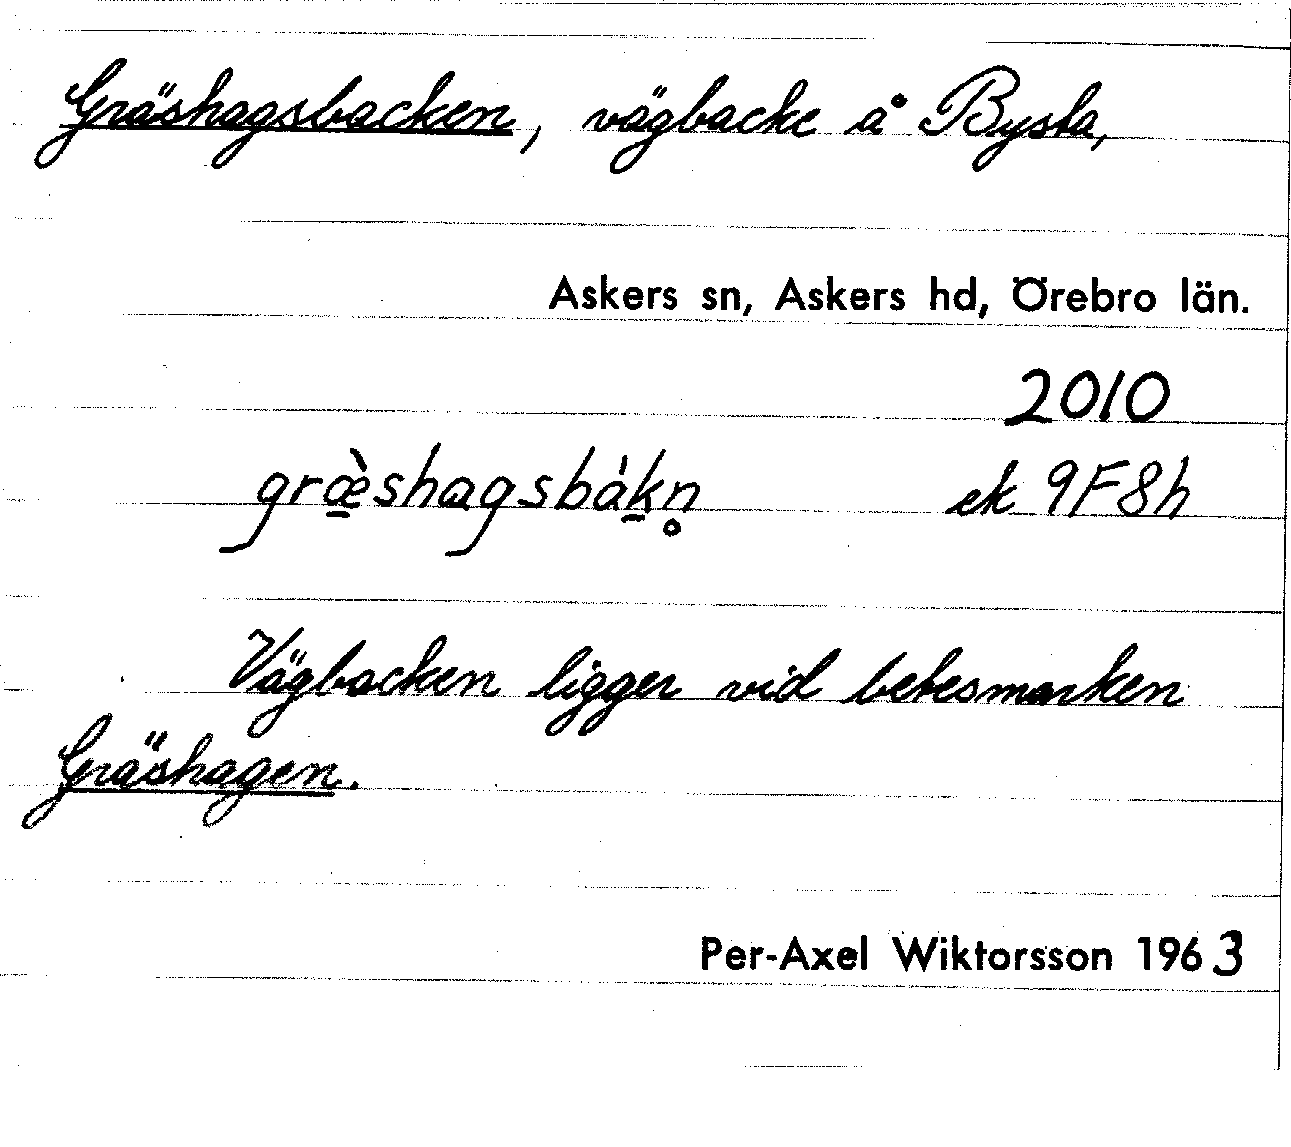 Gräshagsbacken, vägbacke å Bysta,
Askers sn, Askers hd, Örebro län.
2010
græ̠̀shagsbák̠n̥ ek 9F8h
Vägbacken ligger vid betesmarken
Gräshagen.
Per-Axel Wiktorsson 1963